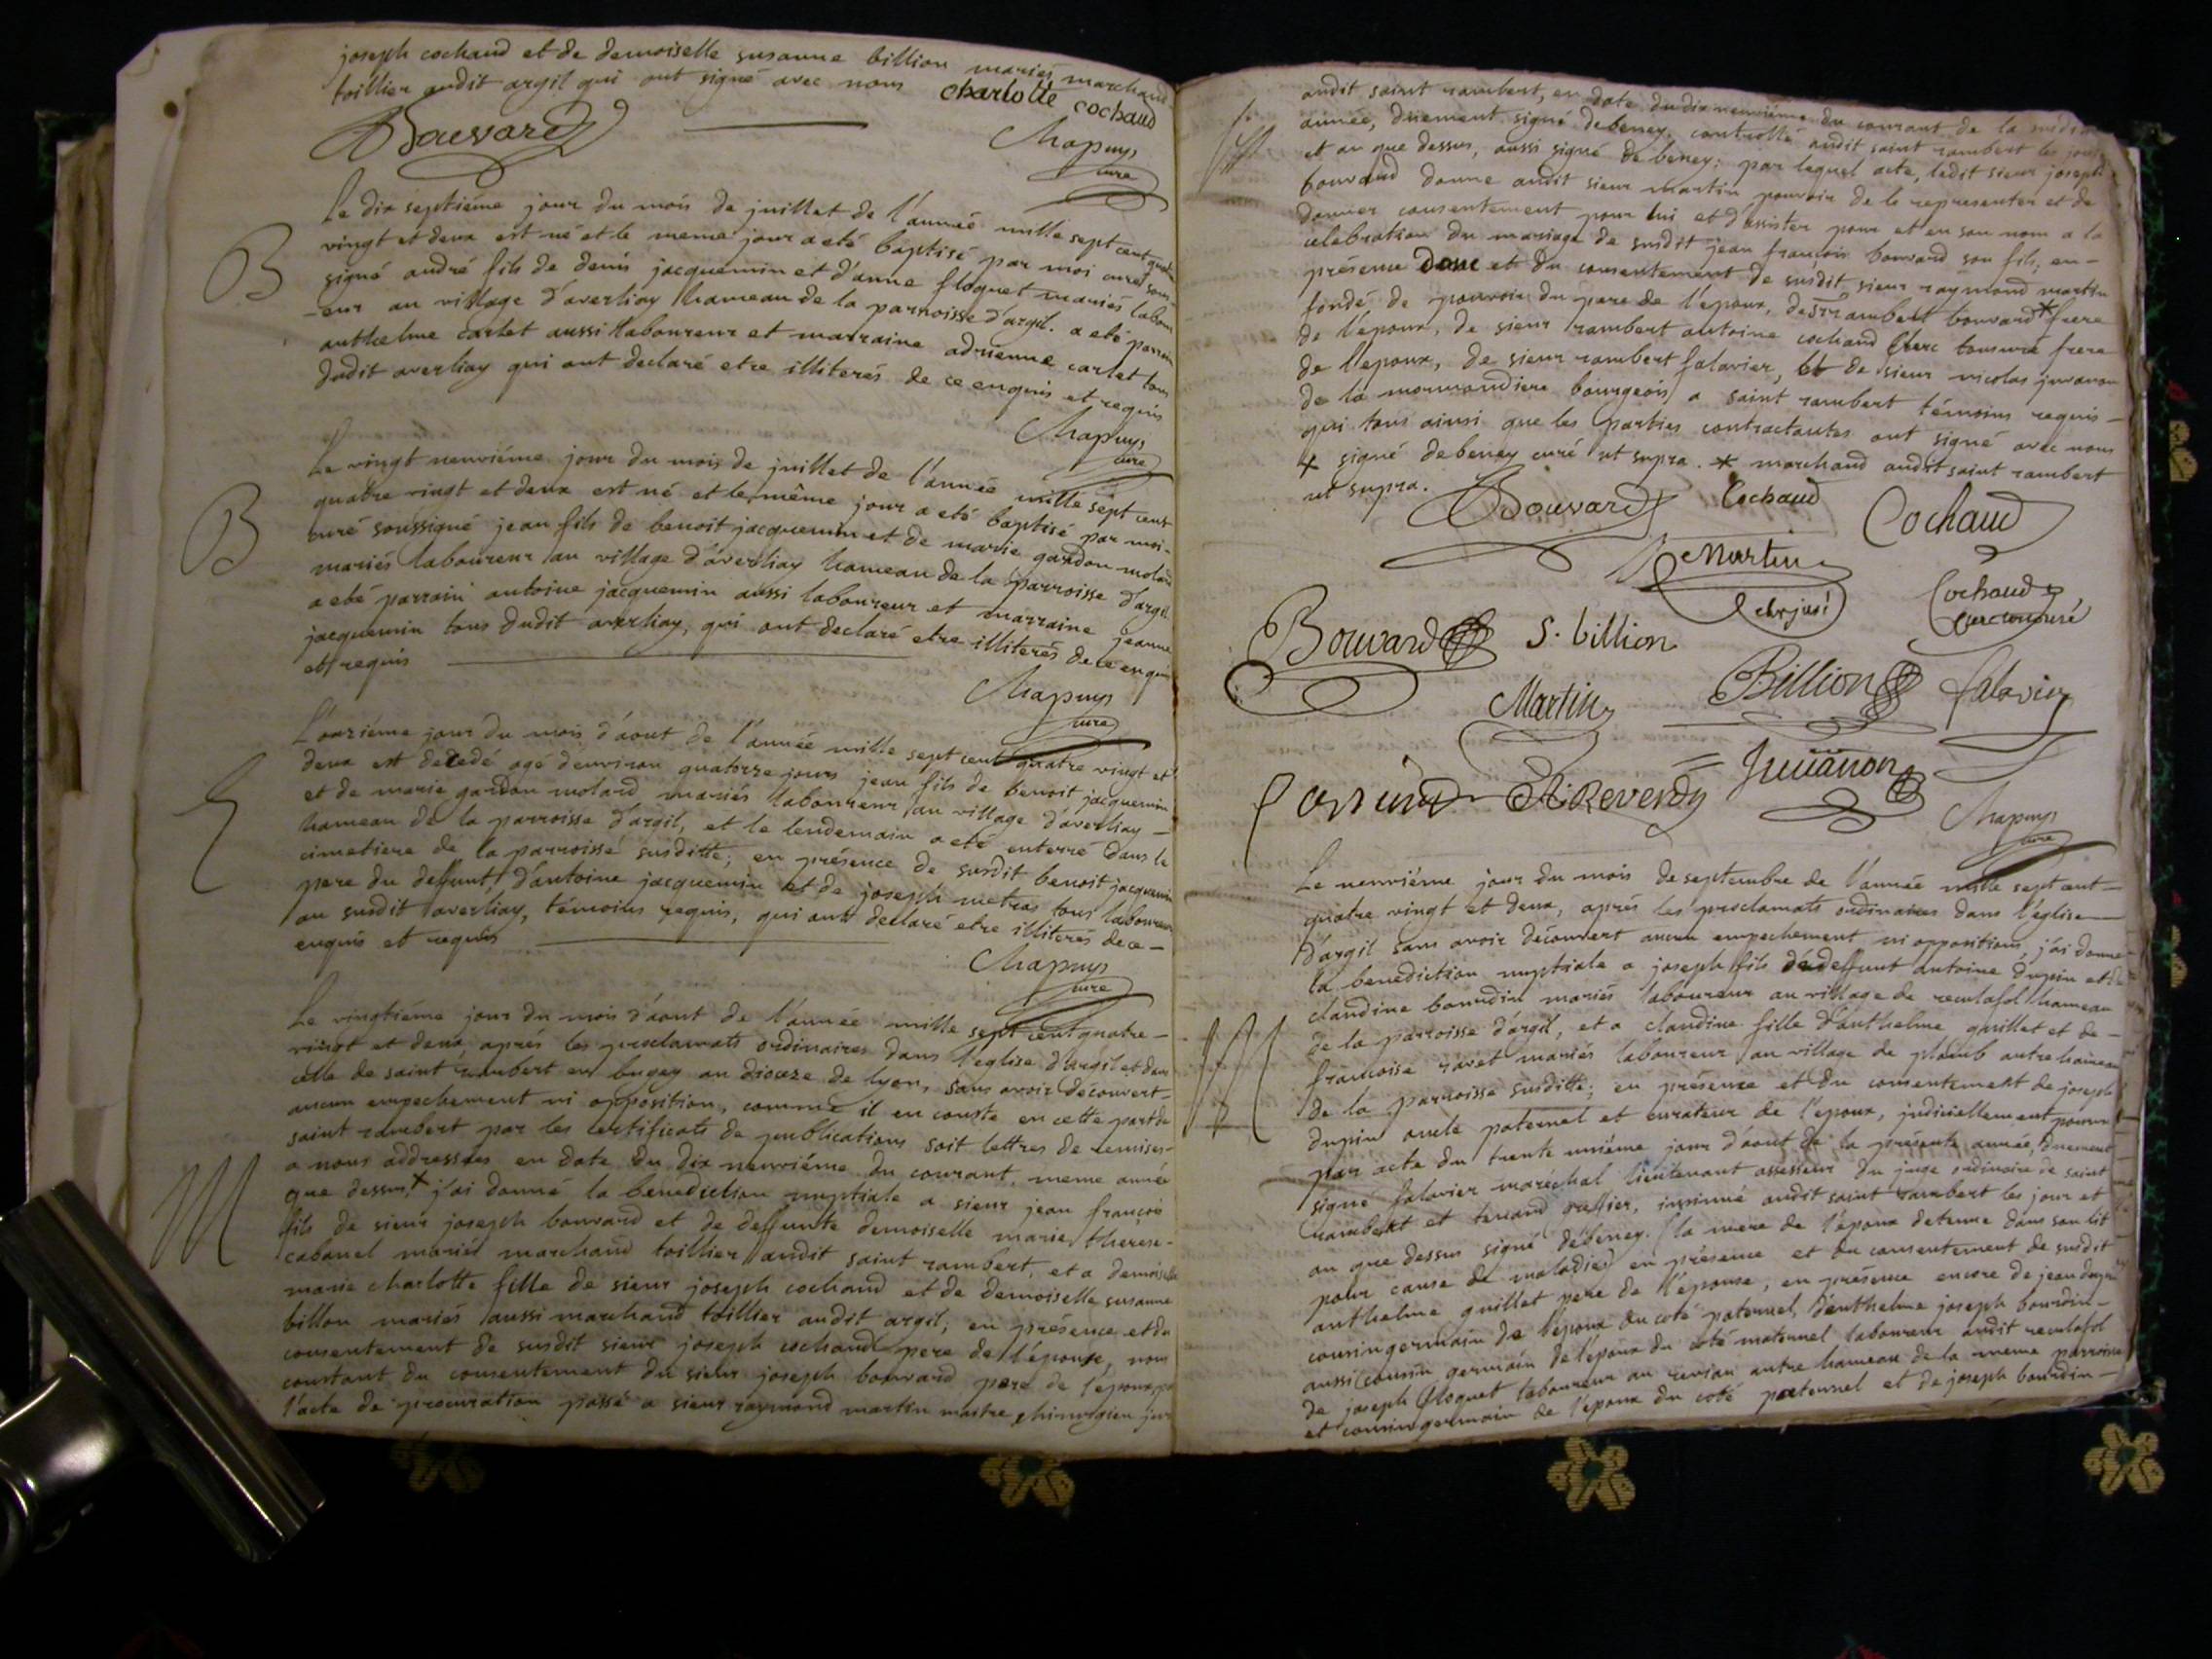 joseph cochaud et de demoiselle susanne billion mariés marchand
toillier audit argil qui ont signé avec nous charlotte cochaud
Bouvard
Chapuys
curé
B
Le dix septiéme jour du mois de juillet de l'année mille sept cent quatre
vingt et deux est né et le meme jour a eté baptisé par moi curé sous-
signé andré fils de denis jacquemin et d'anne floquet mariés labour
-eur au village d'averliay hameau de la parroisse d'argil. a eté parrain
anthelme carlet aussi laboureur et marraine adrienne carlet tous
dudit averliay qui ont declaré etre illiterés de ce enquis et requis
Chapuys
curé
B
Le vingt neuviéme jour du mois de juillet de l'année mille sept cent
quatre vingt et deux est né et le même jour a eté baptisé par moi-
curé soussigné jean fils de benoit jacquemin et de marie gardon molard
mariés laboureur au village d'averliay hameau de la parroisse d'argil.
a eté parrain antoine jacquemin aussi laboureur et marraine jeanne
jacquemin tous dudit averliay, qui ont declaré etre illiterés de ce enquis
et requis
Chapuys
curé
L'onziéme jour du mois d'aout de l'année mille sept cent quatre vingt et
deux est decedé agé d'environ quatorze jours jean fils de benoit jacquemin
et de marie gardon molard mariés laboureur au village d'averliay -
hameau de la parroisse d'argil, et le lendemain a eté enterré dans le
cimetiere de la parroisse susditte; en présence de susdit benoit jacquemin
pere du deffunt, d'antoine jacquemin et de joseph metras tous laboureur
au susdit averliay, témoins requis, qui ont declaré etre illiterés de ce -
enquis et requis
Chapuys
curé
M
Le vingtiéme jour du mois d'aout de l'année mille sept cent quatre-
vingt et deux, aprés les proclamats ordinaires dans l'eglise d'argil et dans
celle de saint rambert en bugey au diocèze de lyon, sans avoir découvert-
aucun empechement ni opposition, comme il en conste en cette part de
saint rambert par les certificats de publications soit lettres de remises-
a nous addressées en date du dix neuviéme du courant, meme année
que dessus,+ j'ai donné la benediction nuptiale a sieur jean françois
fils de sieur joseph bouvard et de deffunte demoiselle marie therese-
cabanel mariés marchand toillier audit saint rambert, et a demoiselle
marie charlotte fille de sieur joseph cochaud et de demoiselle susanne
billon mariés aussi marchand toillier audit argil; en présence et du
consentement de susdit sieur joseph cochaud pere de l'épouse, nous
constant du consentement du sieur joseph bouvard pere de l'époux par
l'acte de procuration passé a sieur raymond martin maitre chirurgien juré
audit saint rambert, en date du dix neuviéme du courant de la susditte
année, duement signé debeney. controllé audit saint rambert les jour
et an que dessus, aussi signé de beney; par lequel acte, ledit sieur joseph
bouvard donne audit sieur martin pouvoir de le representer et de
donner consentement pour lui et d'assister pour et en son nom a la
celebration du mariage de susdit jean françois bouvard son fils; en-
présence donc et du consentement de susdit sieur raymond martin
fondé de pouvoir du pere de l'epoux, de sr rambert bouvard * frere
de l'époux, de sieur rambert antoine cochaud clerc tonsuré frere
de l'epoux, de sieur rambert falavier, et de sieur nicolas juvanon
de la mormondiere bourgeois a saint rambert témoins requis-
qui tous ainsi que les parties contractantes ont signé avec nous
+ signé debeney curé ut supra. * marchand audit saint rambert
ut supra.
Bouvard Cochaud Cochaud
Martin
chr juré
Cochaud
clerc tonsuré
Bouvard S. billion
Martin Billion falavier
Reverdy Juuanon
Chapuys
curé
M
Le neuviéme jour du mois de septembre de l'année mille sept cent-
quatre vingt et deux, aprés les proclamats ordinaires dans l'église
d'argil sans avoir découvert aucun empechement ni opposition, j'ai donné
la benediction nuptiale a joseph fils de deffunt antoine dupin et de
claudine bourdin mariés laboureur au village de reculafol hameau
de la parroisse d'argil, et a claudine fille d'anthelme guillet et de -
francoise ravet mariés laboureur au village de plomb autre hameau
de la parroisse susditte; en présence et du consentement de joseph
dupin oncle paternel et curateur de l'epoux, judiciellement pourvu
par acte du trente uniéme jour d'aout de la présente année, duement
signé falavier maréchal lieutenant assesseur du juge ordinaire de saint
rambert et tenand greffier, insinué audit saint rambert les jour et
an que dessus signé débeney. (la mere de l'époux detenue dans son lit
pour cause de maladie) en présence et du consentement de susdit
anthelme guillet pere de l'épouse, en présence encore de jean dupin
cousin germain de l'époux du coté paternel, d'anthelme joseph bourdin-
aussi cousin germain de l'époux du coté maternel laboureur audit reculafol
de joseph floquet laboureur au revion autre hameau de la meme parroisse
et cousin germain de l'époux du coté paternel et de joseph bourdin -